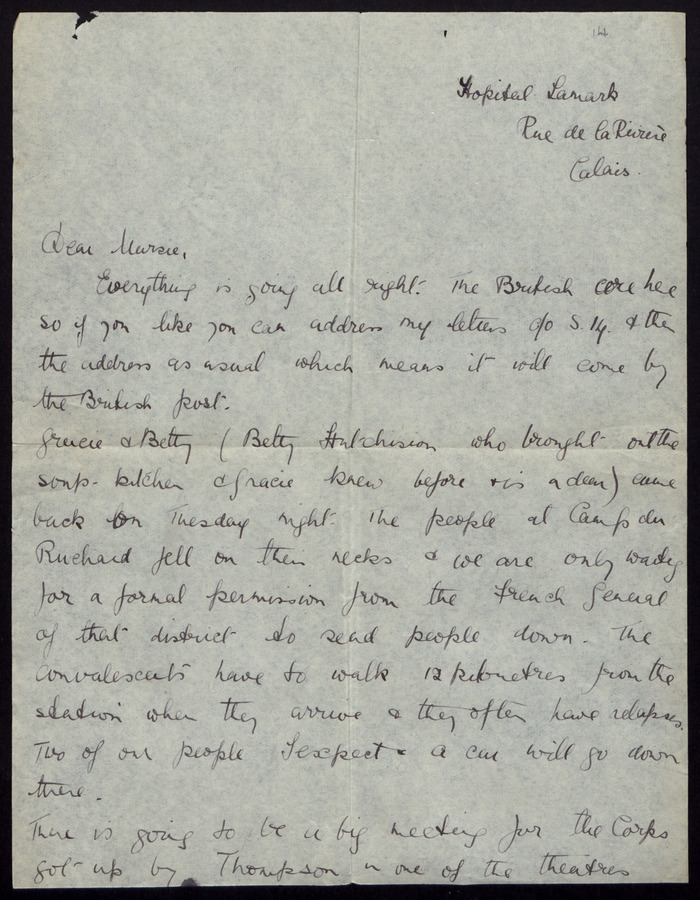 144
Hopital Lamark
Rue de la Rivière
Calais.
Dear Mursie,
Everything is going all right. The British are here
so if you like you can address my letters c/o S.14. & then
the address as usual which means it will come by
the British post.
Gracie & Betty ( Betty Hutchison who brought out the
soup-kitchen & Gracie knew before & is a dear) came
back on Tuesday night. The people at Camp du
Ruchard fell on their necks & we are only waiting
for a formal permission from the French General
of that district to send people down. The
convalescents have to walk 12 kilometres from the
station when they arrive & they often have relapses.
Two of our people I expect & a car will go down
there.
There is going to be a big meeting for the Corps
got up by Thompson in one of the theatres